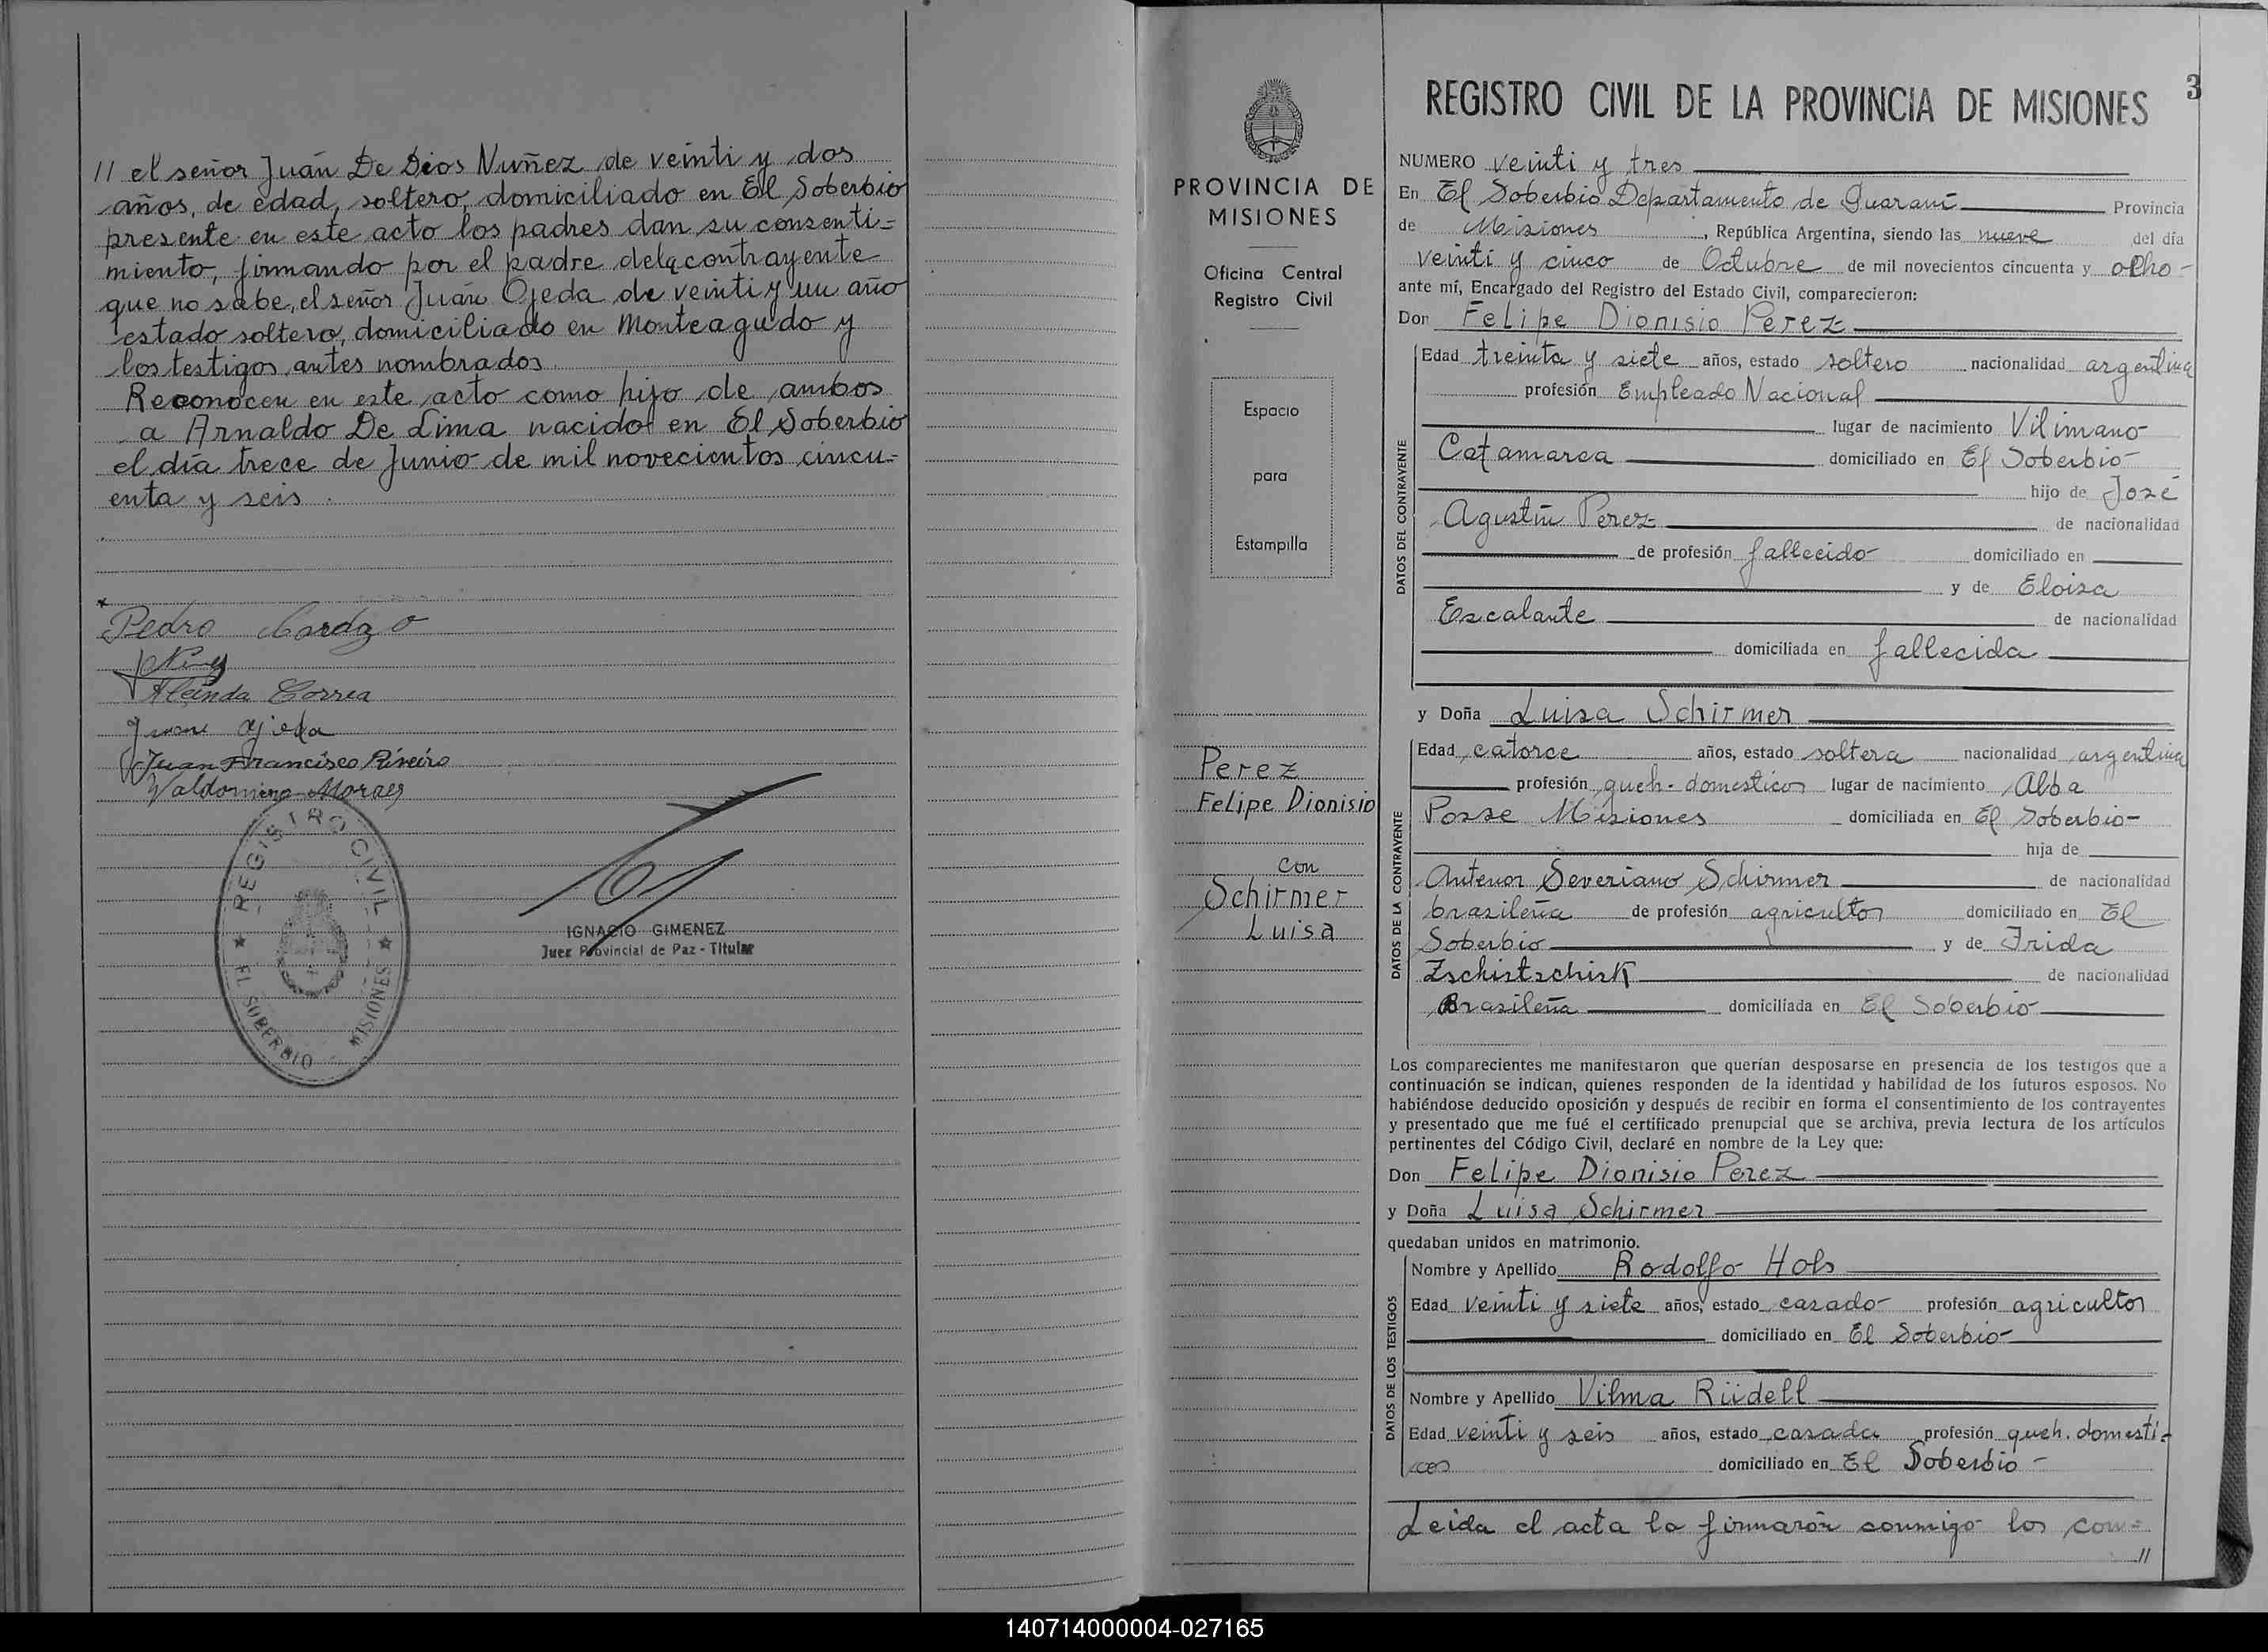 // el señor Juán De Dios Nuñez de veinti y dos
años, de edad, soltero, domiciliado en El Soberbio
presente en este acto los padres dan su consenti=
miento, firmando por el padre dela contrayente
que no sabe, el señor Juán Ojeda de veinti y un año
estado soltero, domiciliado en Monteagudo y
los testigos antes nombrados
Reconocen en este acto como hijo de ambos
a Arnaldo De Lima nacido en El Soberbio
el día trece de Junio de mil novecientos cincu=
enta y seis.
Pedro Cardozo
Alcinda Correa
Juan Ojeda
Juan Francisco Riveiro
Valdomiro Moraes
REGISTRO CIVIL
EL SOBERBIO MISIONES
IGNACIO GIMENEZ
Juez Provincial de Paz - Titular
PROVINCIA DE
MISIONES
Oficina Central
Registro Civil
Espacio
para
Estampilla
Perez
Felipe Dionisio
con
Schirmer
Luisa
3
REGISTRO CIVIL DE LA PROVINCIA DE MISIONES
NUMERO veinti y tres
En El Soberbio Departamento de Guaraní Provincia
de Misiones, República Argentina, siendo las nueve del día
veinti y cinco de Octubre de mil novecientos cincuenta y ocho
ante mí, Encargado del Registro del Estado Civil, comparecieron:
Don Felipe Dionisio Perez
DATOS DEL CONTRAYENTE
Edad treinta y siete años, estado soltero nacionalidad argentina
profesión Empleado Nacional
lugar de nacimiento Vilimano
Catamarca domiciliado en El Soberbio
hijo de José
Agustín Perez de nacionalidad
de profesión fallecido domiciliado en
y de Eloisa
Escalante de nacionalidad
domiciliada en fallecida
y Doña Luisa Schirmer
DATOS DE LA CONTRAYENTE
Edad catorce años, estado soltera nacionalidad argentina
profesión queh. domesticos lugar de nacimiento Alba
Posse Misiones domiciliada en El Soberbio
hija de
Antenor Severiano Schirmer de nacionalidad
brasileña de profesión agricultor domiciliado en El
Soberbio y de Frida
Zschistschisk de nacionalidad
Brasileña domiciliada en El Soberbio
Los comparecientes me manifestaron que querían desposarse en presencia de los testigos que a
continuación se indican, quienes responden de la identidad y habilidad de los futuros esposos. No
habiéndose deducido oposición y después de recibir en forma el consentimiento de los contrayentes
y presentado que me fué el certificado prenupcial que se archiva, previa lectura de los artículos
pertinentes del Código Civil, declaré en nombre de la Ley que:
Don Felipe Dionisio Perez
y Doña Luisa Schirmer
quedaban unidos en matrimonio.
DATOS DE LOS TESTIGOS
Nombre y Apellido Rodolfo Hols
Edad veinti y siete años, estado casado profesión agricultor
domiciliado en El Soberbio
Nombre y Apellido Vilma Rüdell
Edad veinti y seis años, estado casada profesión queh. domesti=
cos domiciliado en El Soberbio
Leida el acta la firmarón conmigo los con=
//
140714000004-027165